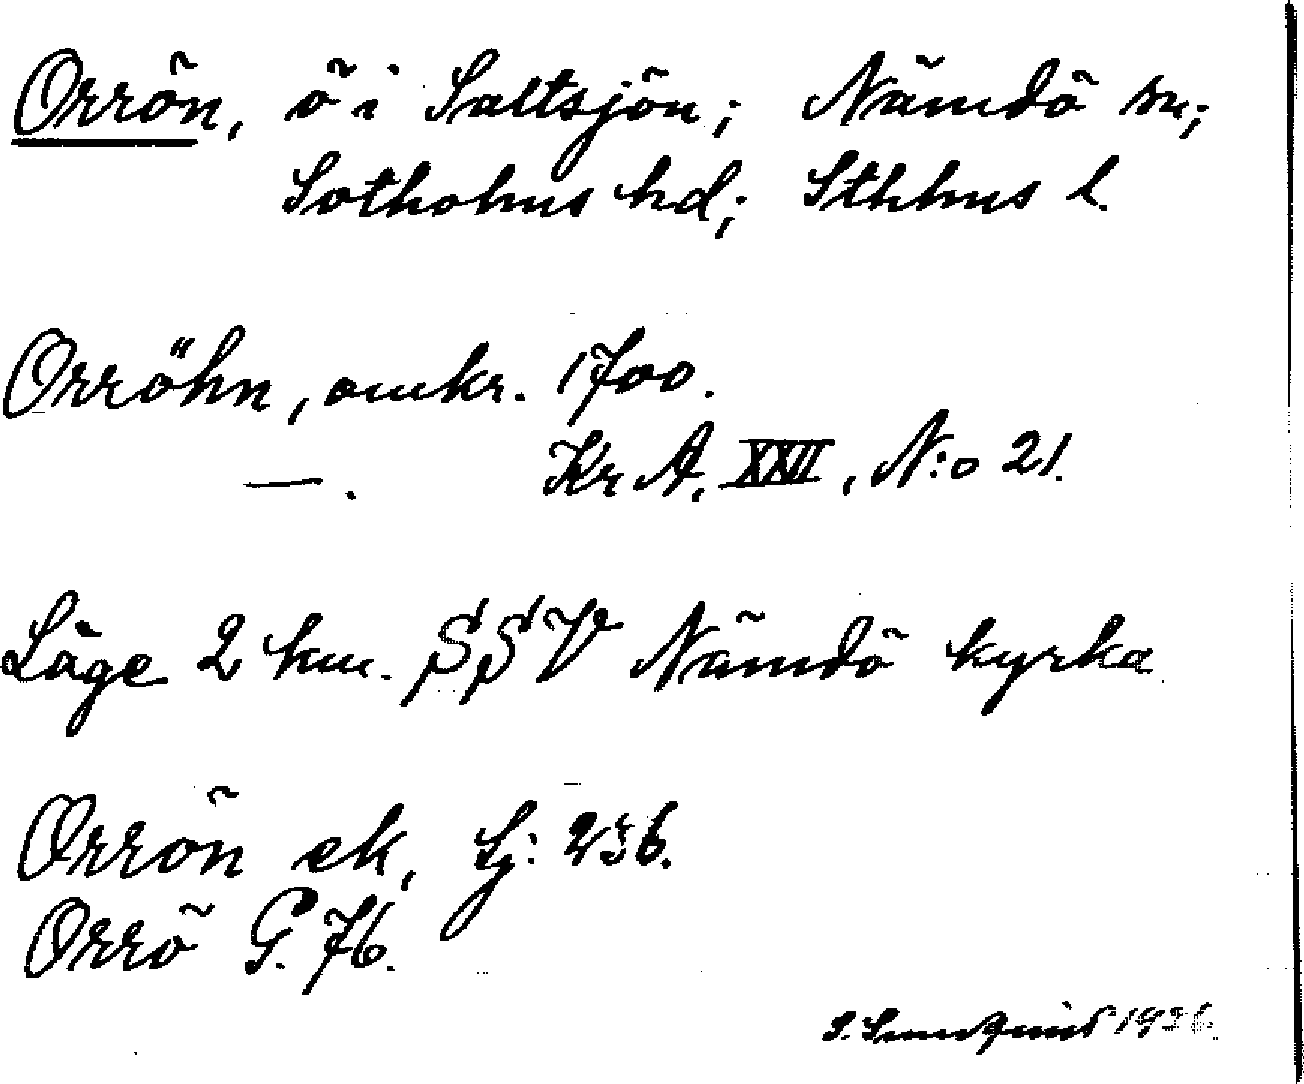 Orrön, ö i Saltsjön; Nämdö sn;
Sotholms hd; Sthlms l.
Orröhn, omkr. 1700.
—. Kr A, XXII, N:o 21.
Läge 2 km. SSV Nämdö kyrka
Orrön ek, Lj: 236.
Orrö G. 76.
1936.